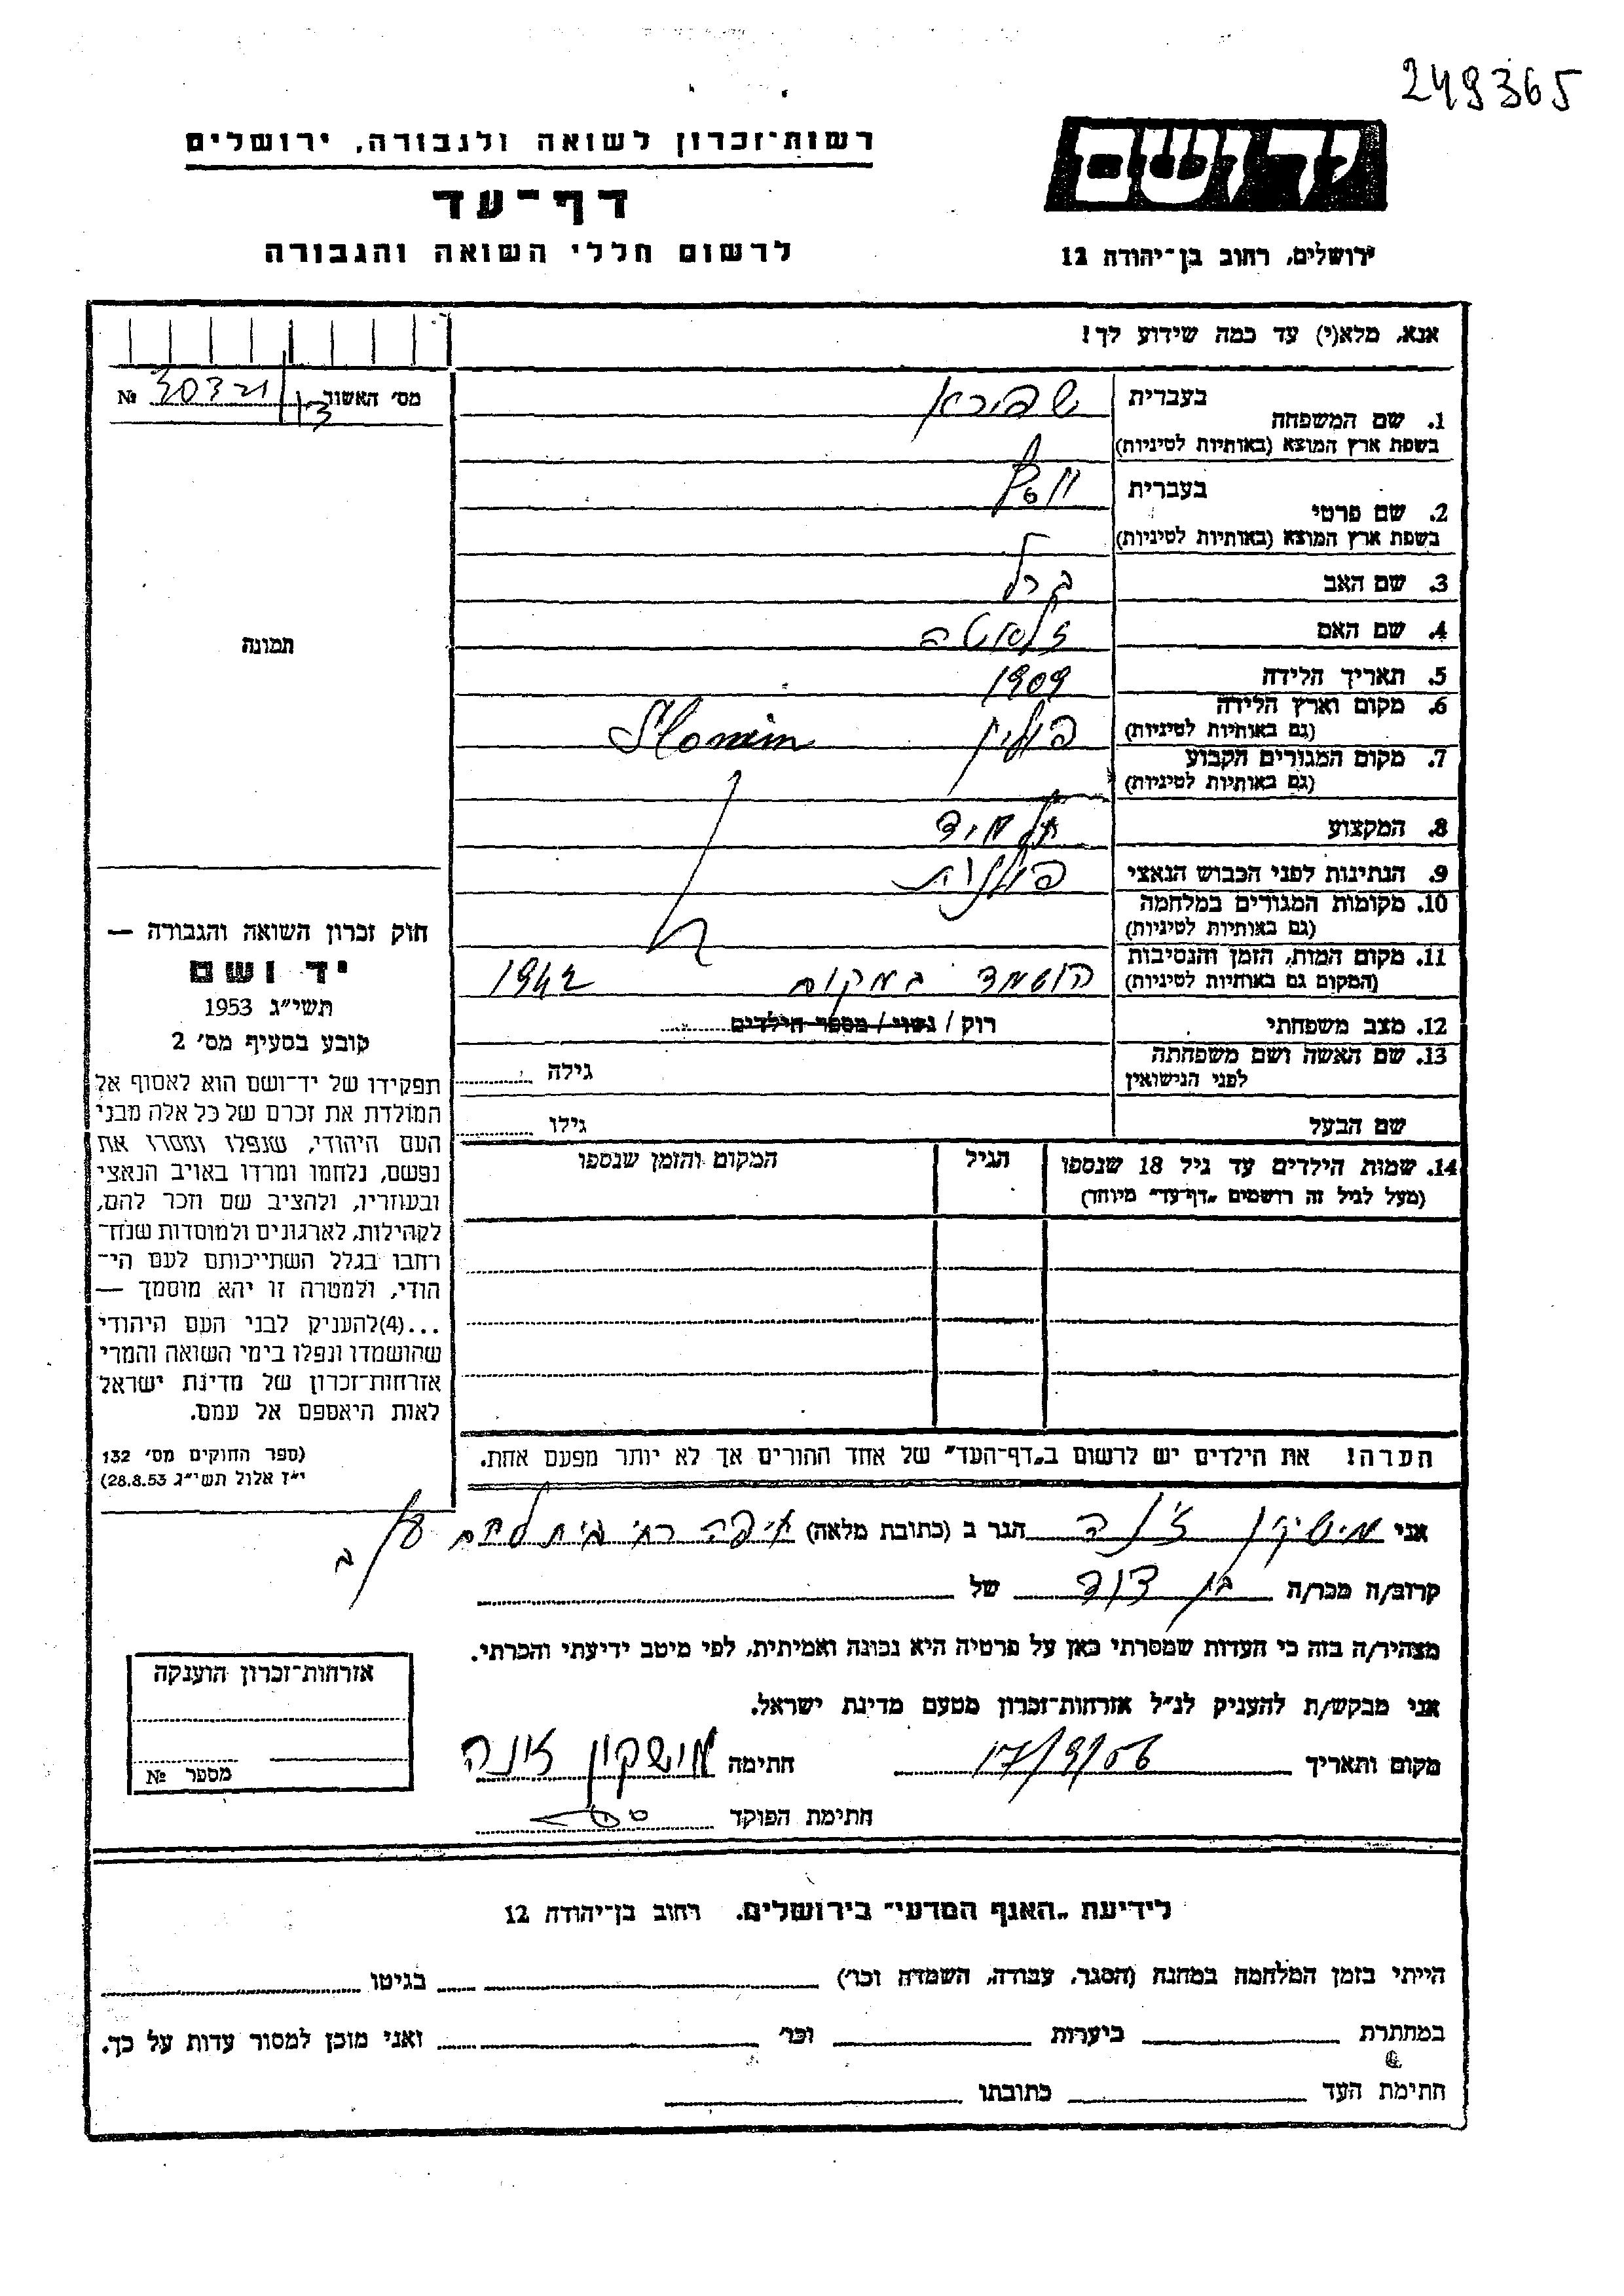 249365
יד ושם
ירושלים, רחוב בן־יהודה 12
רשות־זכרון לשואה ולגבורה, ירושלים
דף־עד
לרשום חללי השואה והגבורה
אנא, מלא(י) עד כמה שידוע לך!
מס׳ האשור 30321 № 
בעברית שפירא
1. שם המשפחה
בשפת ארץ המוצא (באותיות לטיניות)
בעברית יוסף
2. שם פרטי
בשפת ארץ המוצא (באותיות לטיניות)
3. שם האב ברל
4. שם האם זלאטה
5. תאריך הלידה 1909
6. מקום וארץ הלידה פולין Slonim
(גם באותיות לטיניות)
7. מקום המגורים הקבוע
(גם באותיות לטיניות)
8. המקצוע תלמיד
9. הנתינות לפני הכבוש הנאצי פולנית
10. מקומות המגורים במלחמה
(גם באותיות לטיניות)
11. מקום המות, הזמן והנסיבות הושמד במקום 1942
(המקום גם באותיות לטיניות)
12. מצב משפחתי רוק / נשוי / מספר הילדים
13. שם האשה ושם משפחתה גילה
לפני הנישואין
שם הבעל גילו
14. שמות הילדים עד גיל 18 שנספו הגיל המקום והזמן שנספו
(מעל לגיל זה רושמים „דף־עד״ מיוחד)
הערה! את הילדים יש לרשום ב„דף־העד״ של אחד ההורים אך לא יותר מפעם אחת.
תמונה
חוק זכרון השואה והגבורה —
יד ושם
תשי״ג 1953
קובע בסעיף מס׳ 2
תפקידו של יד־ושם הוא לאסוף אל
המולדת את זכרם של כל אלה מבני
העם היהודי, שנפלו ומסרו את
נפשם, נלחמו ומרדו באויב הנאצי
ובעוזריו, ולהציב שם וזכר להם,
לקהילות, לארגונים ולמוסדות שנח־
רחבו בגלל השתייכותם לעם הי־
הודי, ולמטרה זו יהא מוסמך —
...(4)להעניק לבני העם היהודי
שהושמדו ונפלו בימי השואה והמרי
אזרחות־זכרון של מדינת ישראל
לאות היאספם אל עמם.
(ספר החוקים מס׳ 132
י״ז אלול תשי״ג 28.8.53)
אני מושקין זונה הגר ב (כתובת מלאה) חיפה רח׳
קרוב/ה מכר/ה בן דוד של
מצהיר/ה בזה כי העדות שמסרתי כאן על פרטיה היא נכונה ואמיתית, לפי מיטב ידיעתי והכרתי.
אני מבקש/ת להעניק לנ״ל אזרחות־זכרון מטעם מדינת ישראל.
מקום ותאריך 17/9/56 חתימה מושקין זונה
חתימת הפוקד
אזרחות־זכרון הוענקה
מספר №
לידיעת „האגף המדעי״ בירושלים. רחוב בן־יהודה 12
הייתי בזמן המלחמה במחנה (הסגר, עבודה, השמדה וכו׳) בגיטו
במחתרת ביערות וכו׳ ואני מוכן למסור עדות על כך.
חתימת העד כתובתו